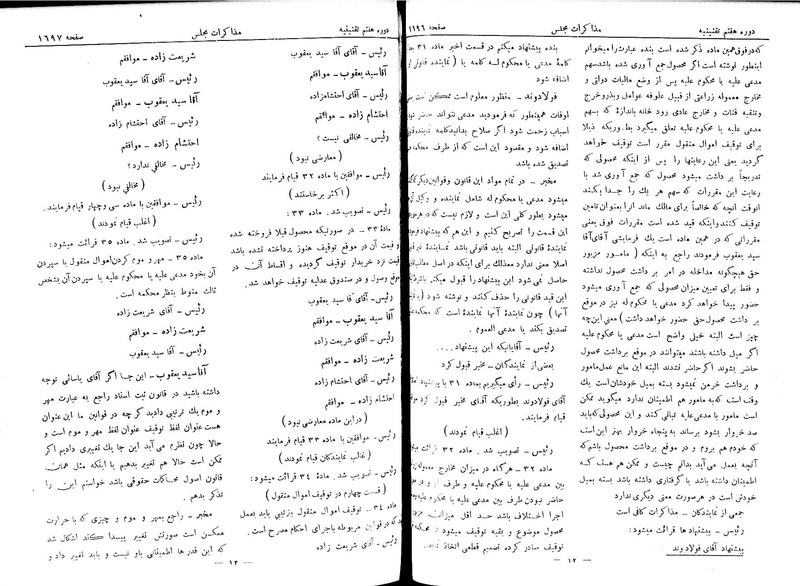 دوره هفتم تقنینیه
مذاکرات مجلس
صفحه ۱۱۹۶
که در فوق همین ماده ذکر شده است بنده عبارت را میخوانم
اینطور نوشته است اگر محصول جمع آوری شده باشد سهم
مدعی علیه یا محکوم علیه پس از وضع مالیات دولتی و
مخارج معموله زراعتی از قبیل علوفه عوامل و بذر و خرج
و تنقیه قنات و مخارج عادی رود خانه باندازۀ که بسهم
مدعی علیه یا محکوم علیه تعلق میگیرد بطوریکه ذیلا
برای توقیف اموال منقول مقرر است توقیف خواهد
گردید یعنی این رعایتها را پس از اینکه محصولی که
تدریجاً بر داشت میشود محصول که جمع آوری شد با
رعایت این مقررات که سهم هر یک را جدا بکنند
آنوقت آنچه که خالصاً برای مالک ماند آنرا بعنوان تامین
توقیف کنند و اینکه قید شده است مقررات فوق یعنی
مقرراتی که در همین ماده است یک فرمایشی آقای آقا
سید یعقوب فرمودند راجع به اینکه ( مامور مزبور
حق هیچگونه مداخله در امر بر داشت محصول نداشته
و فقط برای تعیین میزان محصولی که جمع آوری میشود
حضور پیدا خواهد کرد مدعی یا محکوم له نیز در موقع
بر داشت محصول حق حضور خواهد داشت ) معنی این چه
چیز است البته خیلی واضح است مدعی یا محکوم علیه
اگر میل داشته باشند میتوانند در موقع برداشت محصول
حاضر بشوند اگر حاضر نشدند البته این مانع عمل مامور
و برداشت خرمن نمیشود بسته بمیل خودشان است یک
وقت است که به مامور هم اطمینان ندارد میگوید ممکن
است مامور با مدعی علیه تبانی کند و این محصولی که باید
صد خروار بشود برساند به پنجاه خروار بهتر این است
که خودم هم بروم و در موقع برداشت محصول باشم که
آنچه بعمل می آید بدانم چیست و ممکن هم هست که
اطمینان داشته باشد یا گرفتاری داشته باشد بسته بمیل
خودش است در هر صورت معنی دیگری ندارد
جمعی از نمایندگان ـ مذاکرات کافی است
رئیس ـ پیشنهاد ها قرائت میشود :
پیشنهاد آقای فولادوند
بنده پیشنهاد میکنم در قسمت اخیر ماده ۳۱ بعد
کلمۀ مدعی یا محکوم له کلمه یا ( نماینده قانونی
اضافه شود
فولادوند ـ منظور معلوم است ممکن است
اوقات همینطور که فرمودید مدعی نتواند حاضر
اسباب زحمت شود اگر صلاح بدانید کلمه نماینده
اضافه شود و مقصود این است که از طرف محکمه
تصدیق شده باشد
مخبر ـ در تمام مواد این قانون و قوانین دیگر
میشود مدعی یا محکوم له شامل نماینده و وکیل
میشود بطور کلی این است و لازم نیست که در هر
این قسمت را تصریح کنیم و این هم که فرمودید
نمایندۀ قانونی البته باید قانونی باشد نمایندۀ غیر
اصلا معنی ندارد معذلک برای اینکه در اصل
حاصل نمی شود این پیشنهاد را قبول میکنم
این قید قانونی را حذف کنند و نوشته شود ( یا
آنها ) چون نمایندۀ آنها نمایندۀ است که محکمه
تصدیق بکند یا مدعی العموم .
رئیس ـ آقایانیکه این پیشنهاد ....
بعضی از نمایندگان ـ مخبر قبول کرد
رئیس ـ رأی میگیریم بماده ۳۱ با پیشنهاد
آقای فولادوند بطوریکه آقای مخبر قبول کرد
قیام فرمایند .
( اغلب قیام نمودند )
رئیس ـ تصویب شد . ماده ۳۲ قرائت میشود :
ماده ۳۲ ـ هر گاه در میزان مخارج معموله
بین مدعی علیه یا محکوم علیه و طرف او و در
حاضر نبودن طرف بین مدعی علیه یا محکوم علیه
اجرا اختلاف باشد حد اقل میزان
محصول موضوع و بقیه توقیف میشود
توقیف صادر کرده تصمیم قطعی اتخاذ
ـ ۱۲ ـ
دوره هفتم تقنینیه
مذاکرات مجلس
صفحه ۱۶۹۷
رئیس ـ آقای آقا سید یعقوب
آقا سید یعقوب ـ موافقم
رئیس ـ آقای احتشام زاده
احتشام زاده ـ موافقم
رئیس ـ مخالفی نیست ؟
( معارضی نبود )
رئیس ـ موافقین با ماده ۳۲ قیام فرمایند
( اکثر برخاستند )
رئیس ـ تصویب شد . ماده ۳۳ :
مادۀ ۳۳ ـ در صورتیکه محصول قبلا فروخته شده
و قیمت آن در موقع توقیف هنوز پرداخته نشده باشد
قیمت نزد خریدار توقیف گردیده و اقساط آن در
موقع وصول و در صندوق عدلیه توقیف خواهد شد .
رئیس ـ آقای آقا سید یعقوب
آقا سید یعقوب ـ موافقم
رئیس ـ آقای شریعت زاده
شریعت زاده ـ موافقم
رئیس ـ آقای احتشام زاده
احتشام زاده ـ موافقم
( در این ماده معارضی نبود )
رئیس ـ موافقین با ماده ۳۳ قیام فرمایند
( غالب نمایندگان قیام نمودند )
رئیس ـ تصویب شد . مادۀ ۳۴ قرائت میشود :
( قسمت چهارم در توقیف اموال منقول )
مادۀ ۳۴ ـ توقیف اموال منقول بترتیبی باید بعمل
آید که در قوانین مربوطه باجرای احکام مصرح است .
رئیس ـ آقای شریعت زاده
شریعت زاده ـ موافقم
رئیس ـ آقای آقا سید یعقوب
آقا سید یعقوب ـ موافقم
رئیس ـ آقای احتشام زاده
احتشام زاده ـ موافقم
رئیس ـ مخالفی ندارد ؟
( مخالفی نبود )
رئیس ـ موافقین با ماده سی و چهار قیام فرمایند .
( اغلب قیام نمودند )
رئیس ـ تصویب شد . ماده ۳۵ قرائت میشود :
ماده ۳۵ ـ مهر و موم کردن اموال منقول یا سپردن
آن بخود مدعی علیه یا محکوم علیه یا سپردن آن بشخص
ثالث منوط بنظر محکمه است .
رئیس ـ آقای شریعت زاده
شریعت زاده ـ موافقم
رئیس ـ آقای آقا سید یعقوب
آقا سید یعقوب ـ این جا اگر آقای یاسائی توجه
داشته باشید در قانون ثبت اسناد راجع به عبارت مهر
و موم یک ترتیبی دادید گر چه در قوانین ما این عنوان
هست عنوان لفظ توقیف لفظ مهر و موم است و
حالا چون نظرم می آید این جا یک تغییری دادیم اگر
ممکن است حالا هم تغییر بدهیم یا اینکه مثل همان
قانون اصول محاکمات حقوقی باشد خواستم این را
تذکر بدهم .
مخبر ـ راجع بمهر و موم و چیزی که با حرارت
ممکن است صورتش تغییر پیدا کند اشکال شد
که این قدر ها اطمینانی باو نیست و باید تغییر داد و
ـ ۱۲ ـ